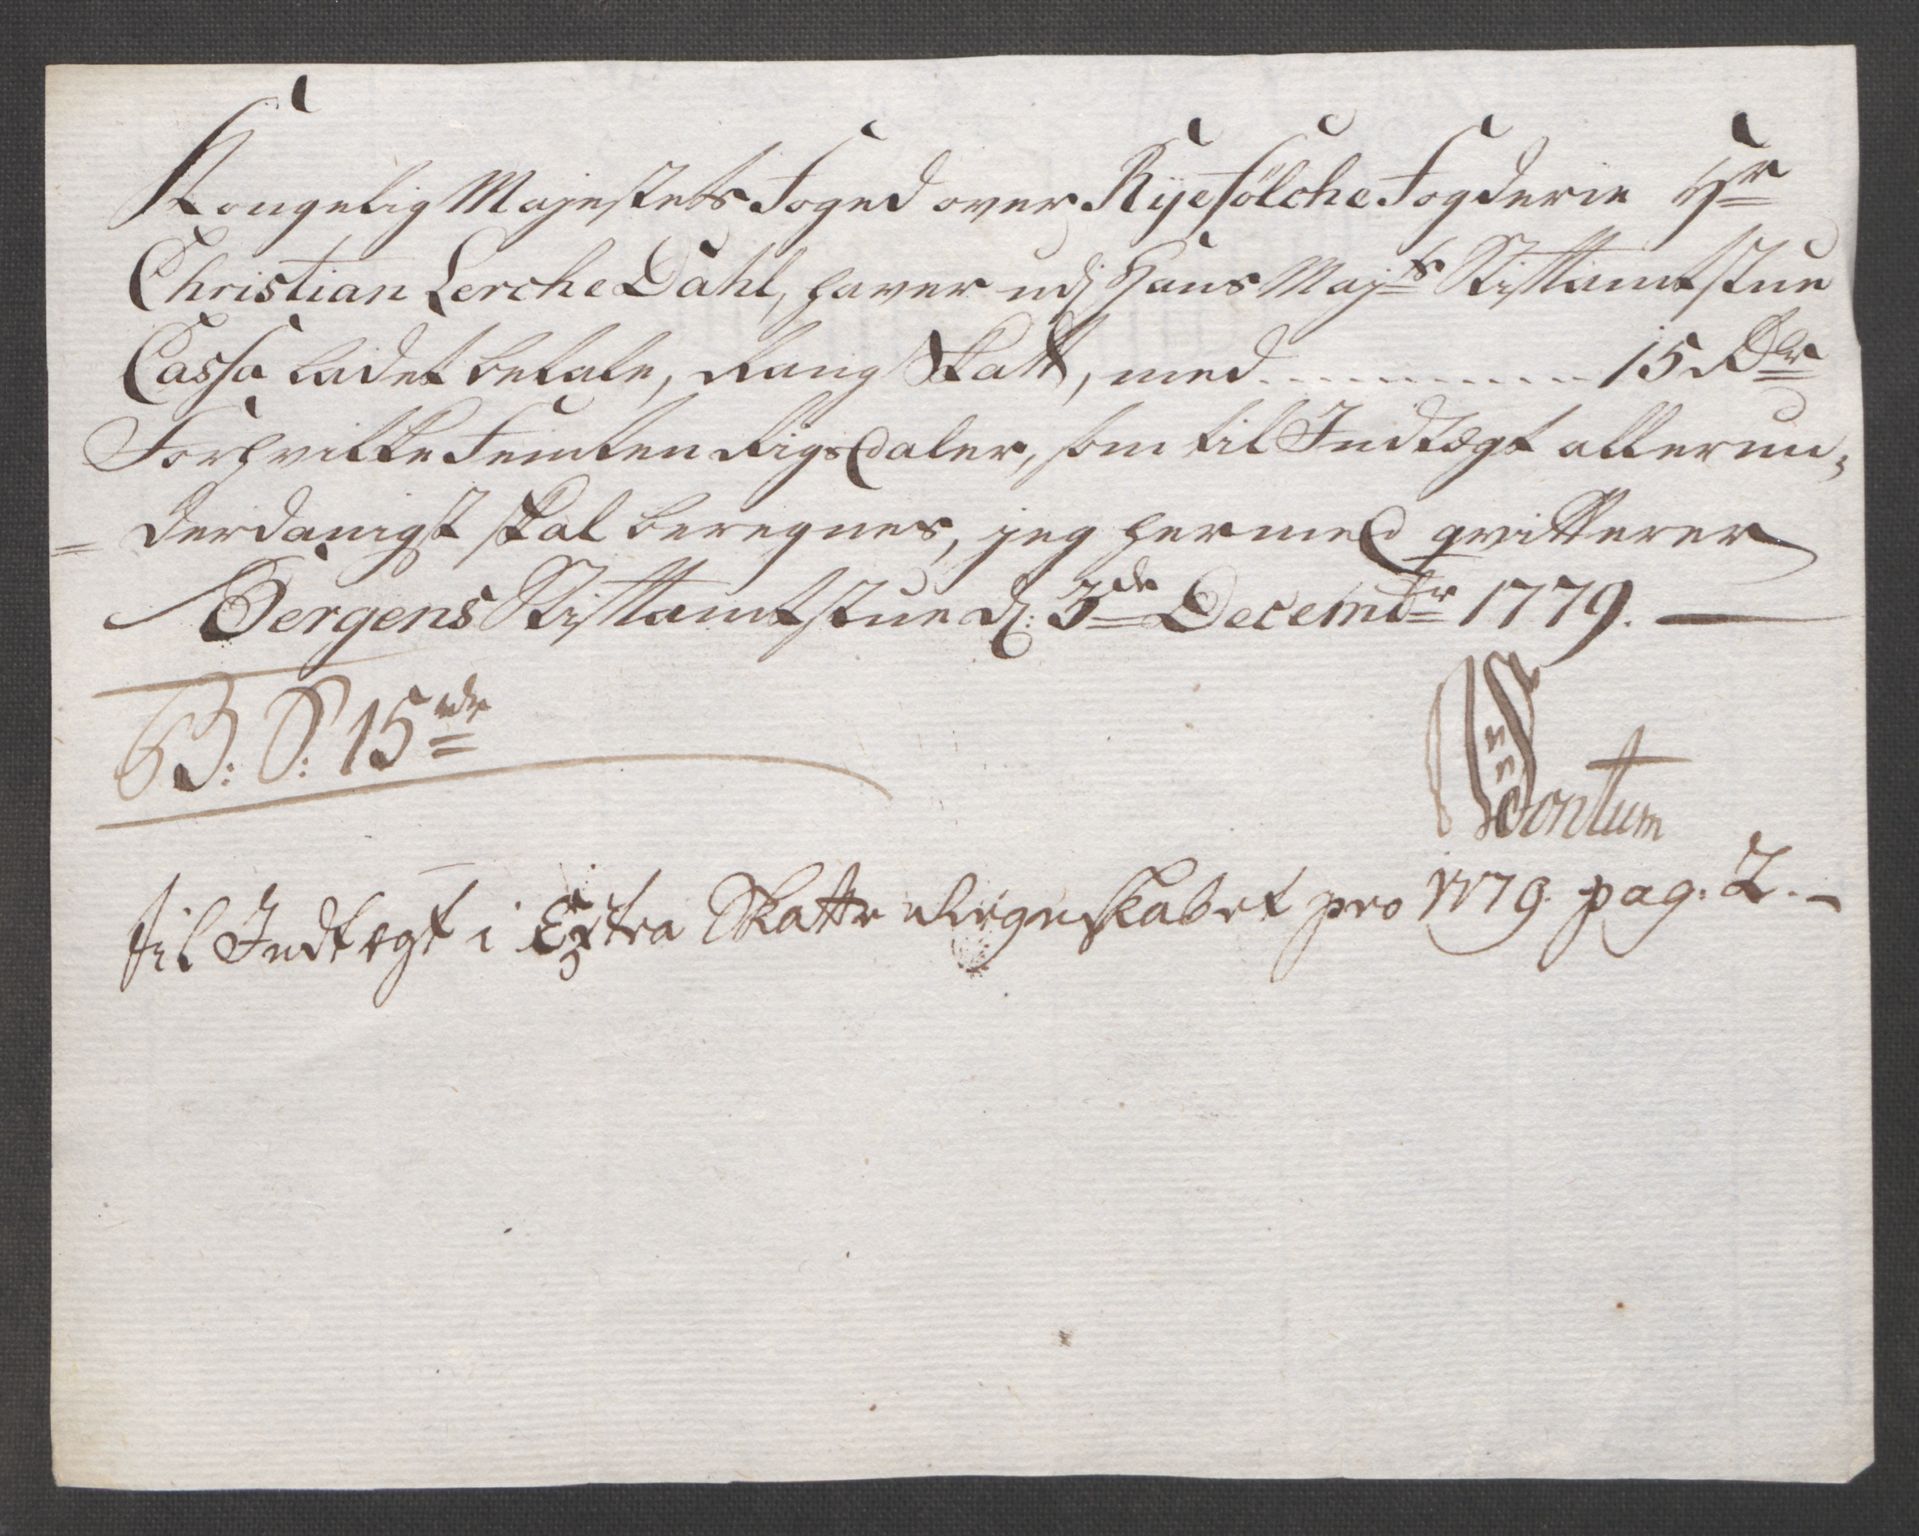 Kongelig Majestets Foged over Ryefölche Fogderie Hr
Christian Lerche Dahl, haver udj Hans Majts Stiftamtstue
Cassa ladet betale, Rang Skatt, med ........... 15 Rdr
Forhvilke Femten Rigsdaler, som til Indtægt allerun-
= derdanigst skal beregnes, jeg hermed qvitterer
Bergens Stiftamtstue d: 3de Decembr 1779.
B: S: 15 rdr
Bontum
til Indtægt i Extra Skatte Regnskabet pro 1779. pag. 2.